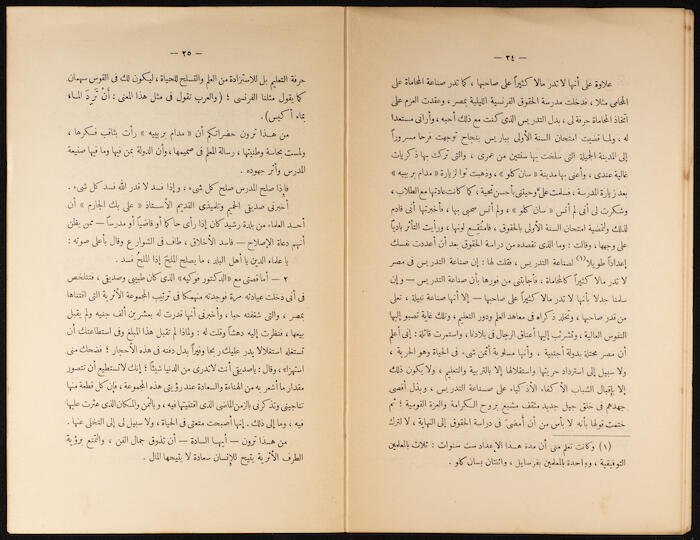 — ٢٤ —
علاوة على أنها لا تدر مالا كثيراً على صاحبها ، كما تدر صناعة المحاماة على
المحامى مثلا ، فدخلت مدرسة الحقوق الفرنسية الليلية بمصر ، وعقدت العزم على
اتخاذ المحاماة حرفة لى ، بدل التدريس الذى كنت مع ذلك أحبه ، وأرانى مستعدا
له ، ولما قضيت امتحان السنة الأولى بباريس بنجاح توجهت فرحا مسروراً
إلى المدينة الجميلة التى سلخت بها سنتين من عمرى ، والتى تركت بها ذكريات
غالية عندى ، وأعنى بها مدينة « سان كلو » ، وذهبت توا لزيارة « مدام بربييه »
بعد زيارة المدرسة ، فسلمت على وحيتنى بأحسن تحية ، كما كانت عادتها مع الطلاب ،
وشكرت لى أنى لم أنس « سان كلو » ، ولم أنس صحبى بها ، فأخبرتها أنى قادم
لذلك ولتمضية امتحان السنة الأولى بالحقوق ، فامتقع لونها ، ورأيت التأثر بادياً
على وجهها ، وقالت : وما الذى تقصده من دراسة الحقوق بعد أن أعددت نفسك
إعداداً طويلا(١) لصناعة التدريس ، فقلت لها : إن صناعة التدريس فى مصر
لا تدر مالا كثيراً كالمحاماة ، فأجابتنى من فورها بأن صناعة التدريس — وإن
سلمنا جدلا بأنها لا تدر مالا كثيراً على صاحبها — إلا أنها صناعة نبيلة ، تعلى
من قدر صاحبها ، وتخلد ذكراه فى معاهد العلم ودور التعليم ، وتلك غاية تصبو إليها
النفوس العالية ، وتشرئب إليها أعناق الرجال فى بلادنا ، واستمرت قائلة : إنى أعلم
أن مصر محتلة بدولة أجنبية ، وأنها مسلوبة أثمن شىء فى الحياة وهو الحرية ،
ولا سبيل إلى استرداد حريتها واستقلالها إلا بالتربية والتعليم ، ولا يكون ذلك
إلا بإقبال الشباب الأكفاء الأذكياء على صناعة التدريس ، وبذل أقصى
جهدهم فى خلق جيل جديد مثقف مشبع بروح الكرامة والعزة القومية ؛ ثم
ختمت قولها بأنه لا بأس من أن أمضى فى دراسة الحقوق إلى النهاية ، لا لترك
(١) وكانت تعلم منى أن مدة هذا الإعداد ست سنوات : ثلاث بالمعلمين
التوفيقية ، وواحدة بالمعلمين بفرسايل ، واثنتان بسان كلو .
— ٢٥ —
حرفة التعليم بل للاستزادة من العلم والتسلح للحياة ، ليكون لك فى القوس سهمان
كما يقول مثلنا الفرنسى ؛ (والعرب تقول فى مثل هذا المعنى : أَنْ تَرِدَ الماء
بماء أكيس) .
من هذا ترون حضراتكم أن « مدام بربييه » رأت بثاقب فكرها ،
ولمست بحاسة وطنيتها ، رسالة المعلم فى صميمها ، وأن الدولة بمن فيها وما فيها صنيعة
المدرس وأثر جهوده .
فإذا صلح المدرس صلح كل شىء ، وإذا فسد لا قدر الله فسد كل شىء .
أخبرنى صديقى الحميم وتلميذى القديم الأستاذ « على بك الجارم » أن
أحد العلماء من بلدة رشيد كان إذا رأى حاكما أو قاضياً أو مدرساً — ممن يظن
أنهم دعاة الإصلاح — فاسد الأخلاق ، طاف فى الشوارع وقال بأعلى صوته :
يا علماء الدين يا أهل البلد ، ما يصلح الملحَ إذا الملحُ فسد .
٢ — أما قصتى مع « الدكتور فوكيه » الذى كان طبيبى وصديقى ، فتتلخص
فى أنى دخلت عيادته مرة فوجدته منهمكا فى ترتيب المجموعة الأثرية التى اقتناها
بمصر ، والتى شغفته حبا ، وأخبرنى أنها قدرت له بعشرين ألف جنيه ولم يقبل
بيعها ، فنظرت إليه دهشاً وقلت له : ولماذا لم تقبل هذا المبلغ وفى استطاعتك أن
تستغله استغلالا يدر عليك ربحا وفيراً بدل دفنه فى هذه الأحجار ؛ فضحك منى
استهزاء ، وقال : ياصديقى أنت لا تدرى من الدنيا شيئاً ؛ إنك لا تستطيع أن تتصور
مقدار ما أشعر به من الهناءة والسعادة عند رؤيتى هذه المجموعة ، فإن كل قطعة منها
تناجينى وتذكرنى بالزمن الماضى الذى اقتنيتها فيه ، وبالثمن والمكان الذى عثرت عليها
فيه ، وما إلى ذلك . إنها أصبحت متعتى فى الحياة ، ولا سبيل لى إلى التخلى عنها .
من هذا ترون — أيها السادة — أن تذوق جمال الفن ، والتمتع برؤية
الطرف الأثرية يتيح للإنسان سعادة لا يتيحها المال .